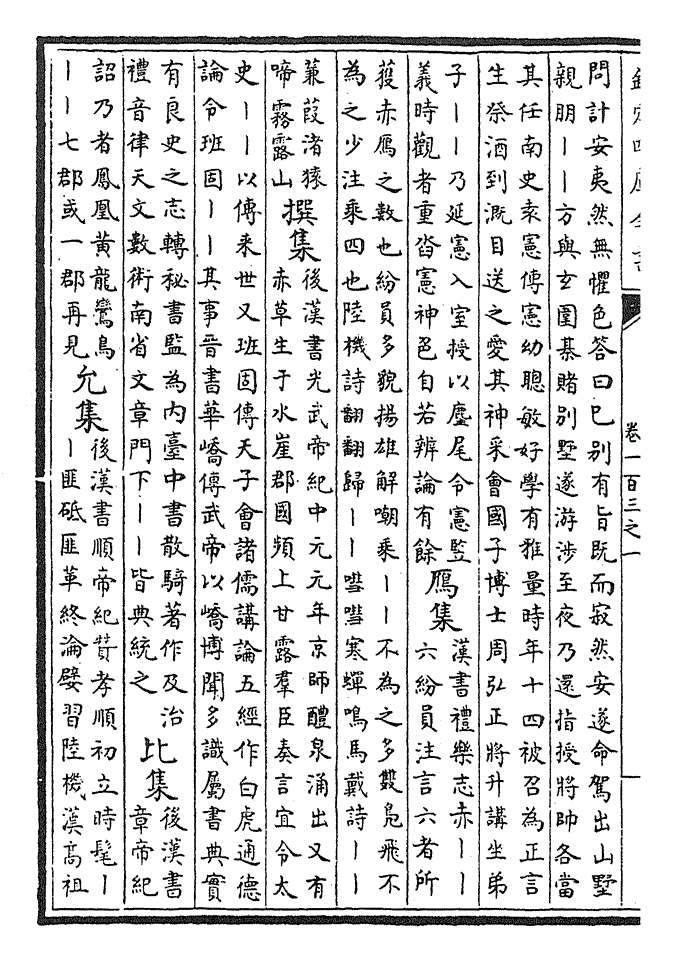 欽定四庫全書
卷一百三之一
問計安夷然無懼色答曰已別有旨既而寂然安遂命駕出山墅
親朋——方與玄圍棊賭別墅遂游涉至夜乃還指授將帥各當
其任南史袁憲傳憲幼聰敏好學有雅量時年十四被召為正言
生祭酒到溉目送之愛其神采會國子博士周弘正將升講坐弟
子——乃延憲入室授以麈尾令憲豎
義時觀者重沓憲神色自若辨論有餘
鴈集
漢書禮樂志赤——
六紛員注言六者所
獲赤鴈之數也紛員多貌揚雄解嘲乘——不為之多雙鳧飛不
為之少注乘四也陸機詩翩翩歸——嘒嘒寒蟬鳴馬戴詩——
蒹葭渚猿
啼霧露山
撰集
後漢書光武帝紀中元元年京師醴泉涌出又有
赤草生于水崖郡國頻上甘露羣臣奏言宜令太
史——以傳来世又班固傳天子會諸儒講論五經作白虎通德
論令班固——其事晉書華嶠傳武帝以嶠博聞多識屬書典實
有良史之志轉秘書監為内臺中書散騎著作及治
禮音律天文數術南省文章門下——皆典統之
比集
後漢書
章帝紀
詔乃者鳳凰黃龍鸞鳥
——七郡或一郡再見
允集
後漢書順帝紀贊孝順初立時髦—
—匪砥匪革終淪嬖習陸機漢高祖